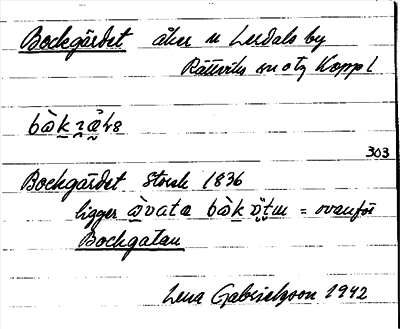 Bockgärdet åker n Lerdals by
Rättviks sn o tg Koppl
303
Bockgärdet Storsk 1836
ligger = ovanför
Bockgatan
Lena Gabrielsson 1942